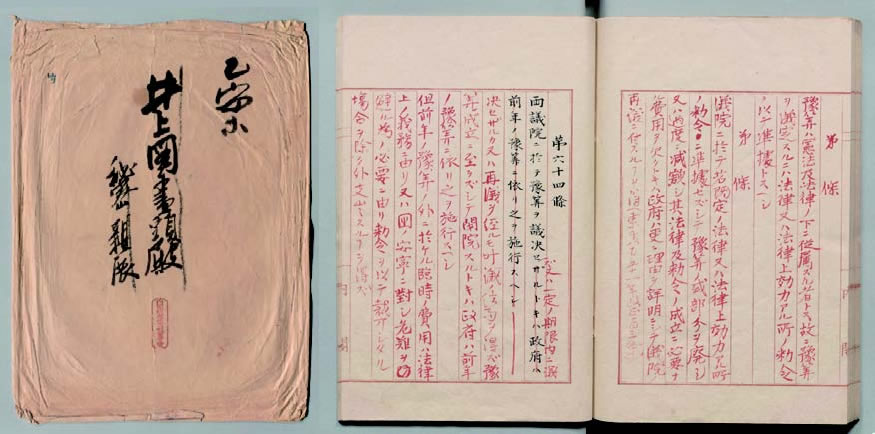 乙案
井上圖書頭殿
親展
第 條
豫算ハ憲法及法律ノ下ニ從屬スル者トス故ニ豫算
ヲ議定スルニハ法律又ハ法律上効力アル所ノ勅令
ヲ以テ準據トスヘシ
第 條
議院ニ於テ若既定ノ法律又ハ法律上効力アル所
ノ勅令ニ準據セズシテ豫算ノ或部分ヲ廢シ
又ハ過度ニ減額シ其法律及勅令ノ成立ニ必要ナ
ル費用ヲ欠クトキハ政府ハ更ニ理由ヲ詳明ニシテ議院
再議ニ付スル
第六十四條
両議院ニ於テ豫算ヲ議決セザルトキハ政府ハ
前年ノ豫算ニ依リ之ヲ施行スヘシ
又ハ一定ノ期限内ニ議
決セザルカ又ハ再議ヲ經ルモ叶議ノ結局ヲ得ズ豫
算成立ニ至ラズシテ閉院スルトキハ政府ハ前年
ノ豫算ニ依リ之ヲ施行スヘシ
但前年ノ豫算ノ外ニ於ケル臨時ノ費用ハ法律
上ノ義務ニ由リ又ハ國ノ安寧ニ對シ危難ヲ
避ル為ノ必要ニ由リ勅令ヲ以テ裁可シタル
場合ヲ除ク外支出スルヿヲ得ズ